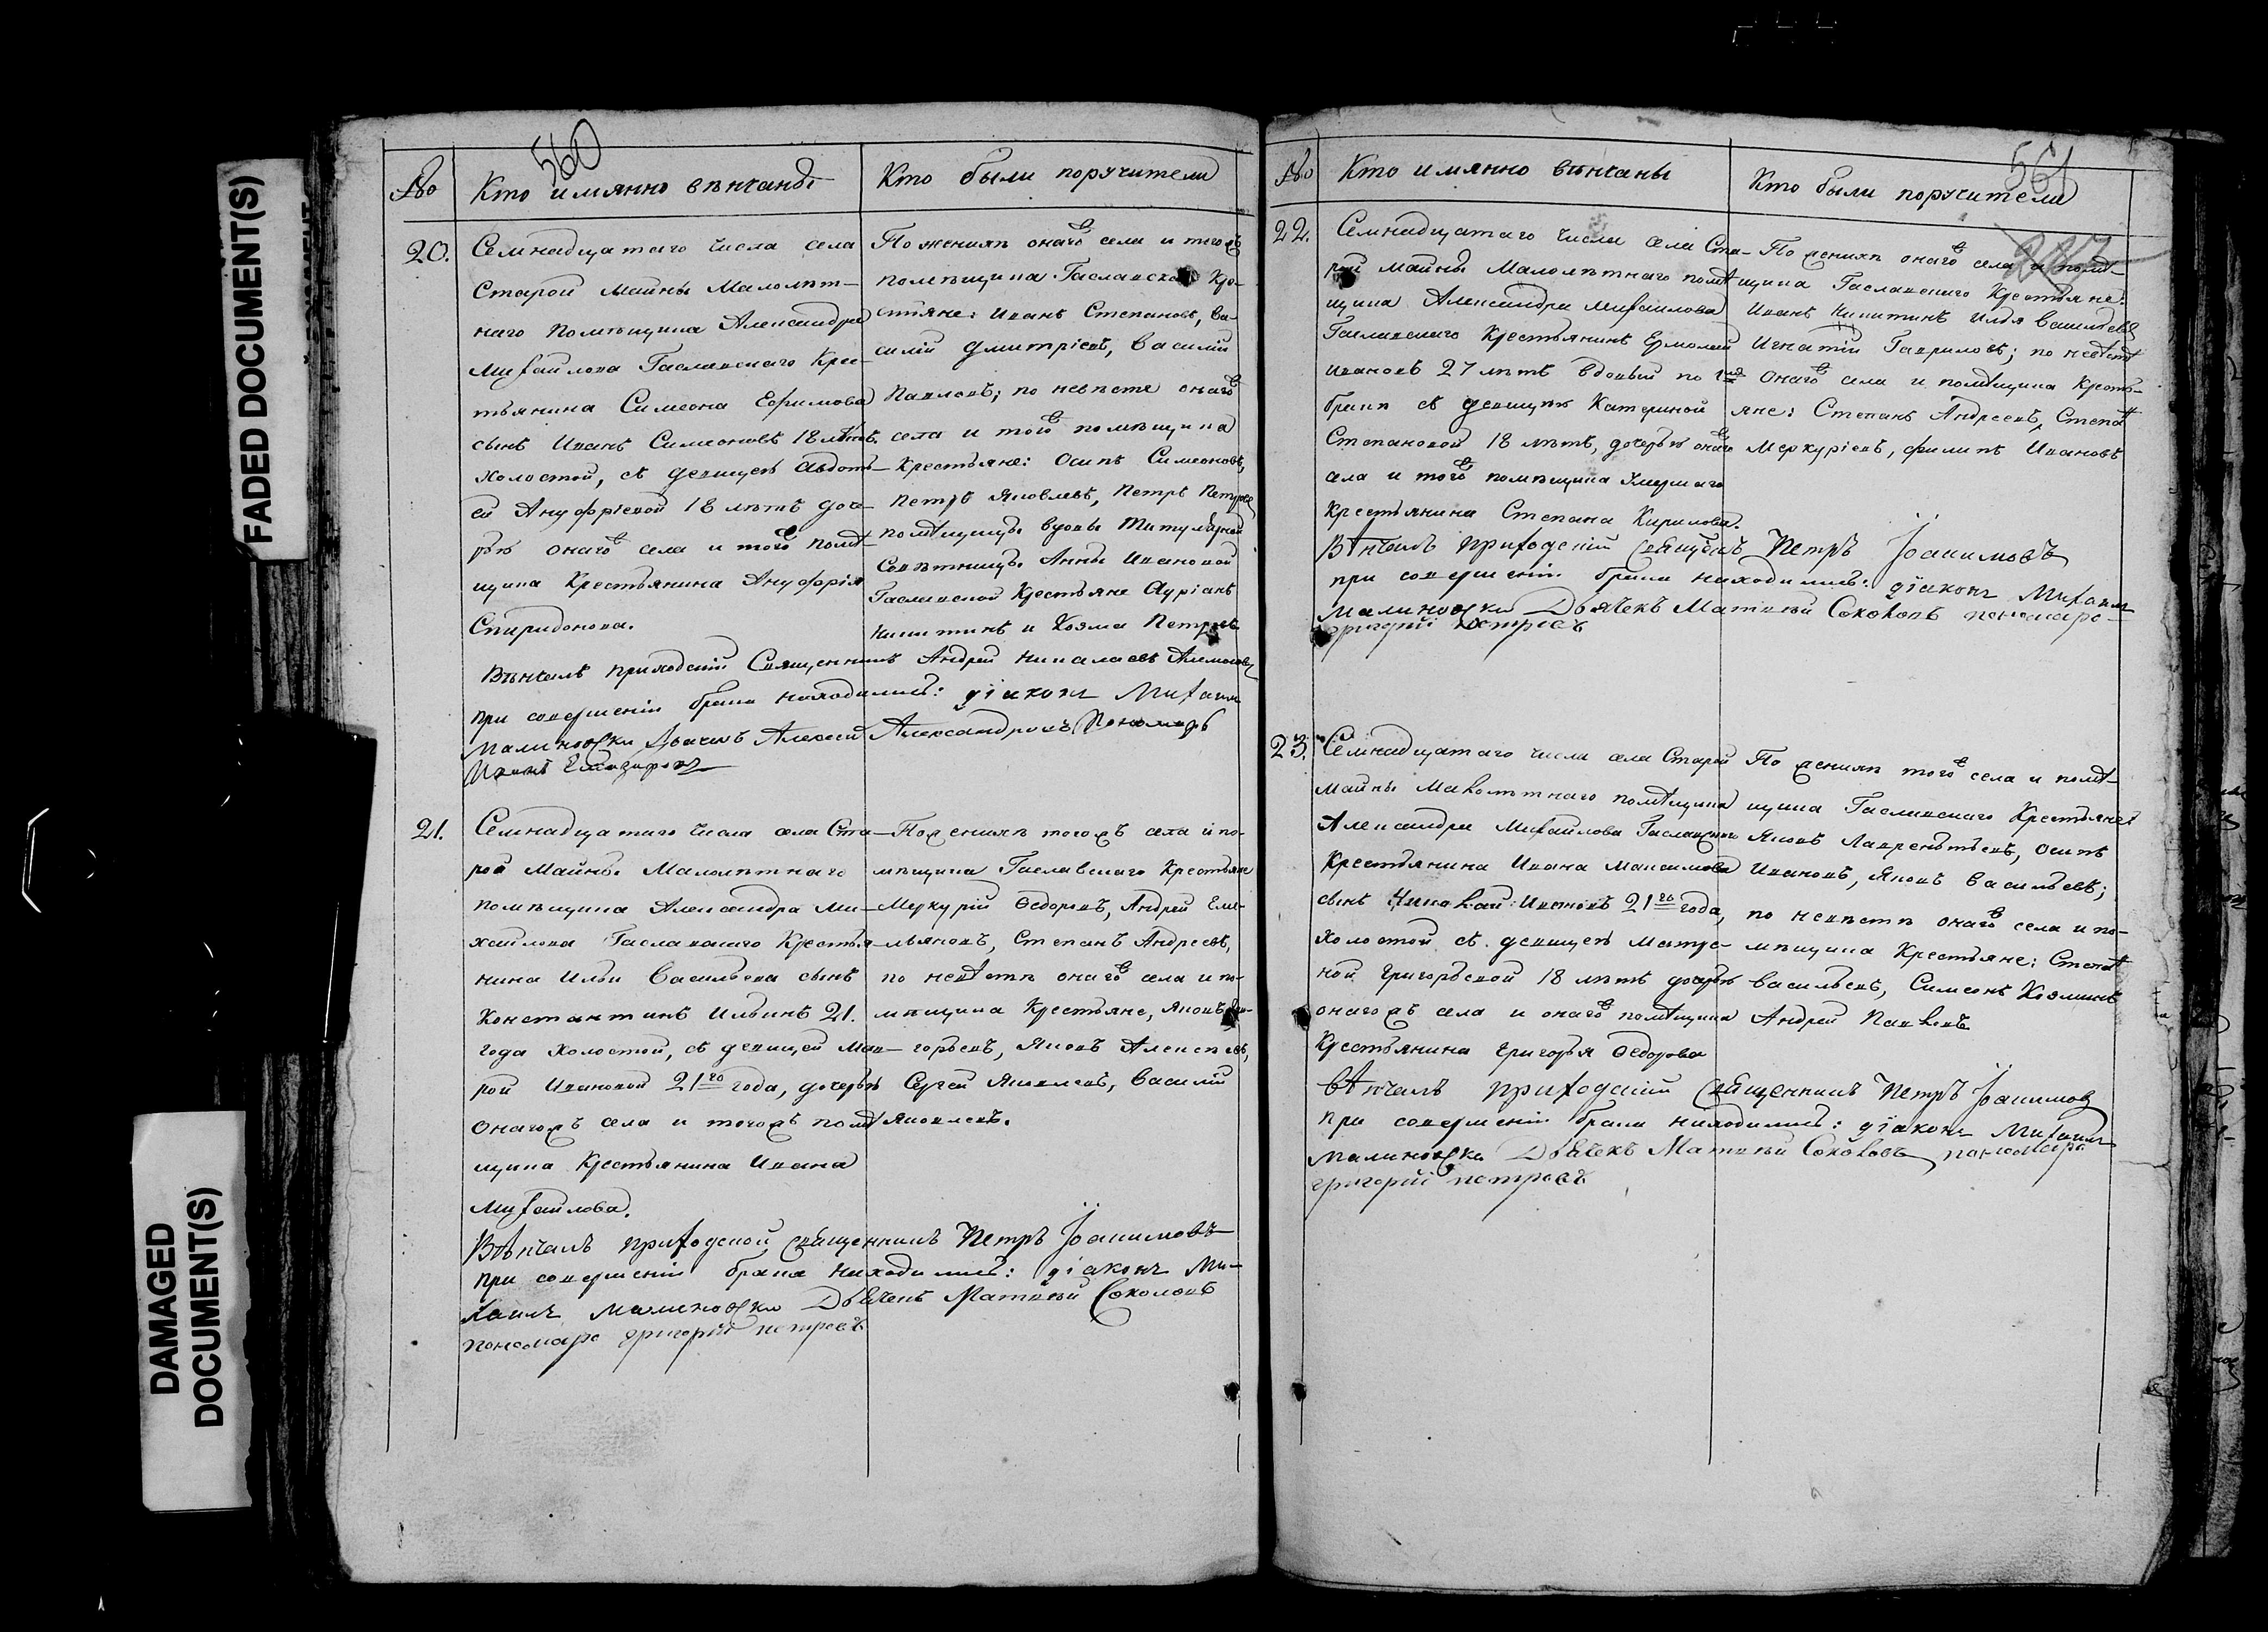 FADED DOCUMENT(S)
DAMAGED
DOCUMENT(S)
560
№
Кто имянно вѣнчанъ
Кто были поручители
20.
Семнадцатаго числа села
Старой Майны Малолѣт-
наго Помѣщика Александра
Михайлова Гаславскаго Крес-
тьянина Симеона Ефимова
сынъ Иванъ Симеоновъ 18 лѣтъ,
холостой, съ девицею Авдоть-
ей Ануфріевой 18 лѣтъ доче-
рью онагожъ села и тогожъ помѣ-
щика Крестьянина Ануфрія
Спиридонова.
По женихѣ онагожъ села и тогожъ
помѣщика Гаславскаго Кре-
стьяне: Иванъ Степановъ, Ва-
силій Дмитріевъ, Василій
Павловъ; по невѣстѣ онагожъ
села и тогожъ помѣщика
Крестьяне: Осипъ Симеоновъ,
Петръ Яковлевъ, Петръ Петровъ
помѣщицы вдовы Титулярной
Совѣтницы Анны Ивановой
Гаславской Крестьяне Адріанъ
Никитинъ и Козма Петровъ
Вѣнчалъ приходскій Священникъ Андрей Николаевъ
при совершеніи брака находились: діаконъ Михаилъ
Малиновски Дьячекъ Алексей Александровъ Пономарь
Иванъ
21.
Семнадцатаго числа села Ста-
рой Майны Малолѣтнаго
помѣщика Александра Ми-
хайлова Гаславскаго Крестья-
нина Ильи Васильева сынъ
Константинъ Ильинъ 21.
года холостой, съ девицей Мав-
рой Ивановой 21го года, дочерью
онагожъ села и тогожъ помѣ-
щика Крестьянина Ивана
Михайлова.
По женихѣ тогожъ села и по-
мѣщика Гаславскаго Крестьяне
Меркурій Ѳедоровъ, Андрей Еме-
льяновъ, Степанъ Андреевъ,
по невѣстѣ онагожъ села и по-
мѣщика Крестьяне, Яковъ Гри-
горьевъ, Яковъ Алексѣевъ,
Сергей Яковлевъ, Василій
Яковлевъ.
Вѣнчалъ приходской священникъ Петръ Іоакимовъ
при совершеніи брака находились: діаконъ Ми-
хаилъ Малиновски Дьячекъ Матвей Соколовъ
пономарь григорій петровъ
561
№
Кто имянно вѣнчаны
Кто были поручители
22.
Семнадцатаго числа села Ста-
рой Майны Малолѣтнаго помѣ-
щика Александра Михайлова
Гаславскаго Крестьянинъ Ермолай
Ивановъ 27 лѣтъ вдовый по 1мъ
бракѣ съ девицею Катериной
Степановой 18 лѣтъ, дочерью онагожъ
села и тогожъ помѣщика Умершаго
Крестьянина Степана Кирилова.
По женихѣ онагожъ села и помѣ-
щика Гаславскаго Крестьяне:
Иванъ Никитинъ Илья Васильевъ
Игнатій Гавриловъ; по невѣстѣ
онагожъ села и помѣщика Кресть-
яне: Степанъ Андреевъ, Степанъ
Меркуріевъ, Филипъ Ивановъ
Вѣнчалъ приходскій священникъ Петръ Іоакимовъ
при совершеніи брака находились: діаконъ Михаилъ
Малиновски Дьячекъ Матвей Соколовъ пономарь
григорій петровъ
23.
Семнадцатаго числа села Старой
Майны Малолѣтнаго помѣщика
Александра Михайлова Гаславскаго
Крестьянина Ивана Максимова
сынъ Николай Ивановъ 21го года,
холостой съ девицею Матре-
ной Григорьевой 18 лѣтъ дочерью
онагожъ села и онагожъ помѣщика
Крестьянина Григорья Ѳедорова
По женихѣ тогожъ села и помѣ-
щика Гаславскаго Крестьяне:
Яковъ Лаврентьевъ, Осипъ
Ивановъ, Яковъ Васильевъ;
по невѣстѣ онагожъ села и по-
мѣщика Крестьяне: Степанъ
Васильевъ, Симеонъ Козминъ
Андрей Павловъ
Вѣнчалъ приходскій священникъ Петръ Іоакимовъ
при совершеніи брака находились: діаконъ Михаилъ
Малиновски Дьячекъ Матвей Соколовъ пономарь
григорій петровъ